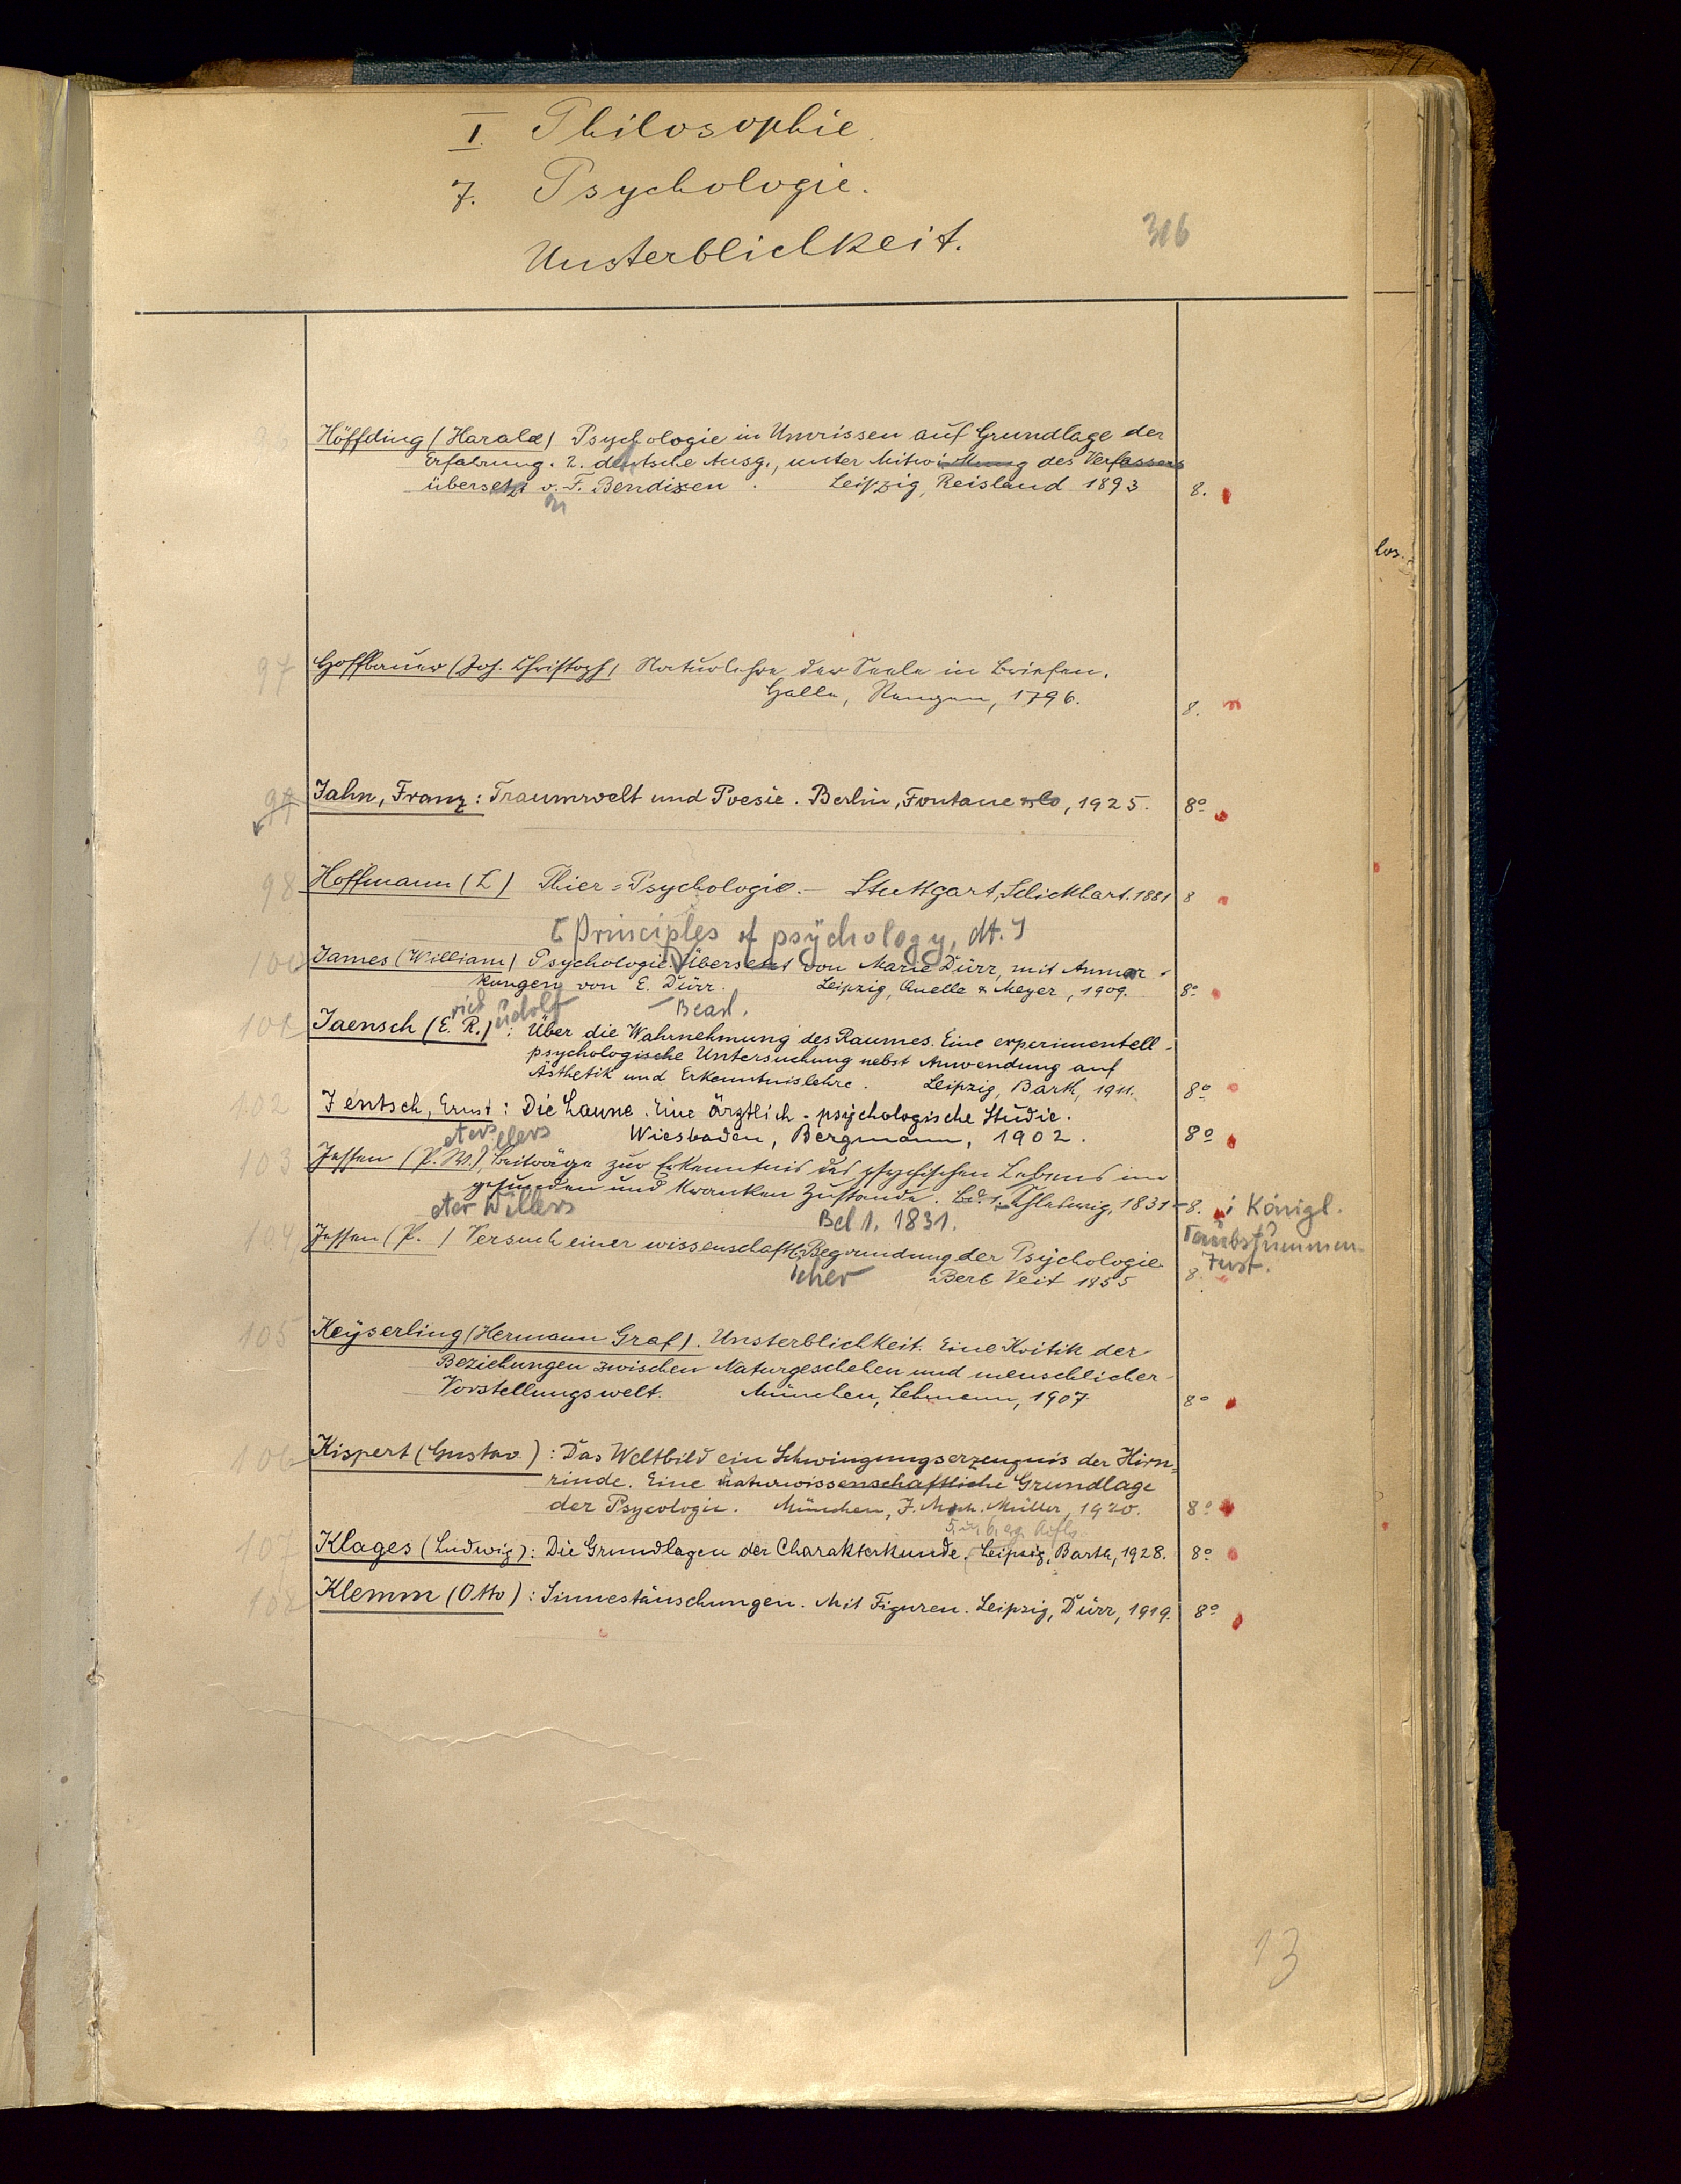 I. Philosophie.
7. Psychologie.
Unsterblichkeit.
306
Höffding (Harald) Psychologie in Umrissen auf Grundlage der
Erfahrung. 2. deutsche Ausg., unter Mitwirkung des Verfassers
übersetzt v. F. Bendixen. Leipzig, Reisland 1893 8.
97 Hoffbauer (Joh. Christoph) Naturlehre der Seele in Briefen.
Halle, Renger, 1796. 8.
99 Jahn, Franz: Traumwelt und Poesie. Berlin, Fontane & Co, 1925. 8°
98 Hoffmann (L) Thier-Psychologie. Stuttgart, Schickhart. 1881 8
[Principles of psychology, dt.]
100 James (William) Psychologie. Übersetzt von Marie Dürr, mit Anmer-
kungen von E. Dürr. Leipzig, Quelle & Meyer, 1909. 8°
rich udolf Bearb.
101 Jaensch (E. R.): Über die Wahrnehmung des Raumes. Eine experimentell-
psychologische Untersuchung nebst Anwendung auf
Ästhetik und Erkenntnislehre. Leipzig, Barth, 1911. 8°
102 Jentsch, Ernst: Die Laune. Eine ärztlich-psychologische Studie.
Wiesbaden, Bergmann, 1902. 8°
eter illers
103 Jessen (P. W.), Beiträge zur Erkenntnis des psychischen Lebens im
gesunden und kranken Zustande. Bd. 1. Schleswig, 1831- 8. : Königl.
eter Willers Bd 1. 1831. Taubstummen-
104 Jessen (P. ) Versuch einer wissenschaftl. Begrundung der Psychologie Inst.
icher Berl Veit 1855 8.
105 Keyserling (Hermann Graf). Unsterblichkeit. Eine Kritik der
Beziehungen zwischen Naturgeschehen und menschlicher
Vorstellungswelt. München, Lehmann, 1907. 8°
106 Kispert (Gustav): Das Weltbild ein Schwingungserzeugnis der Hirn-
rinde. Eine naturwissenschaftliche Grundlage
der Psycologie. München, J. Müller, 1920. 8°
5. u. 6.
107 Klages (Ludwig): Die Grundlagen der Charakterkunde. Leipzig, Barth, 1928. 8°
108 Klemm (Otto): Sinnestäuschungen. Mit Figuren. Leipzig, Dürr, 1919. 8°
13